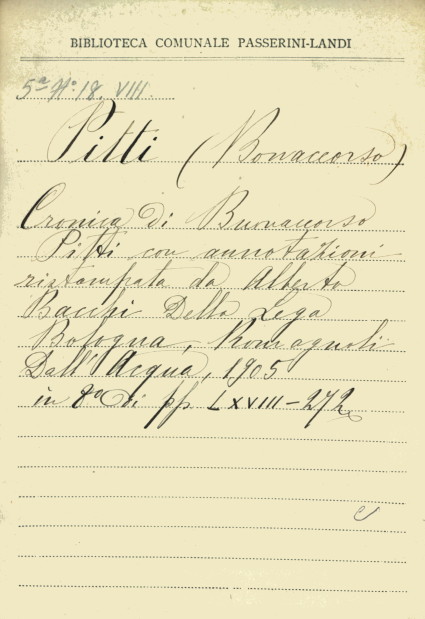 BIBLIOTECA COMUNALE PASSERINI-LANDI
5ª Nº 18. VIII.
Pitti (Bonaccorso)
Cronica di Buonaccorso
Pitti con annotazioni
ristampata da Alberto
Bacchi Della Lega
Bologna, Romagnoli
Dall'Acqua, 1905
in 8º di pp. LXVIII-272